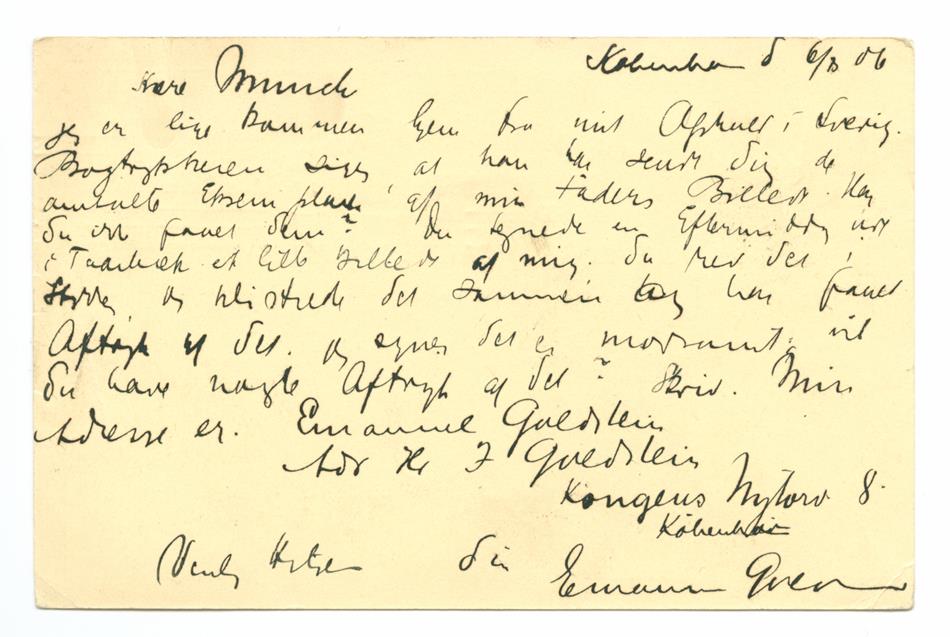 København d 6/8 06
Kære Munch
Jeg er lige kommen hjem fra mit Ophold i Sverig.
Bogtrykkeren siger, at han har sendt dig de
omtalte Eksemplarer af min Faders Billede. Har
du ikke faaet dem? Du tegnede en Eftermiddag ude
i Taarbæk et lille Billede af mig. Du rev det i
Stykker og klistrede det sammen. Jeg har faaet
Aftryk af det. Jeg synes det er morsomt; vil
du have nogle Aftryk af det? Skriv. Min
Adresse er. Emanuel Goldstein
Adr Hr J Goldstein
Kongens Nytorv 8.
København
Venlig Hilsen din
Emanuel Goldstein